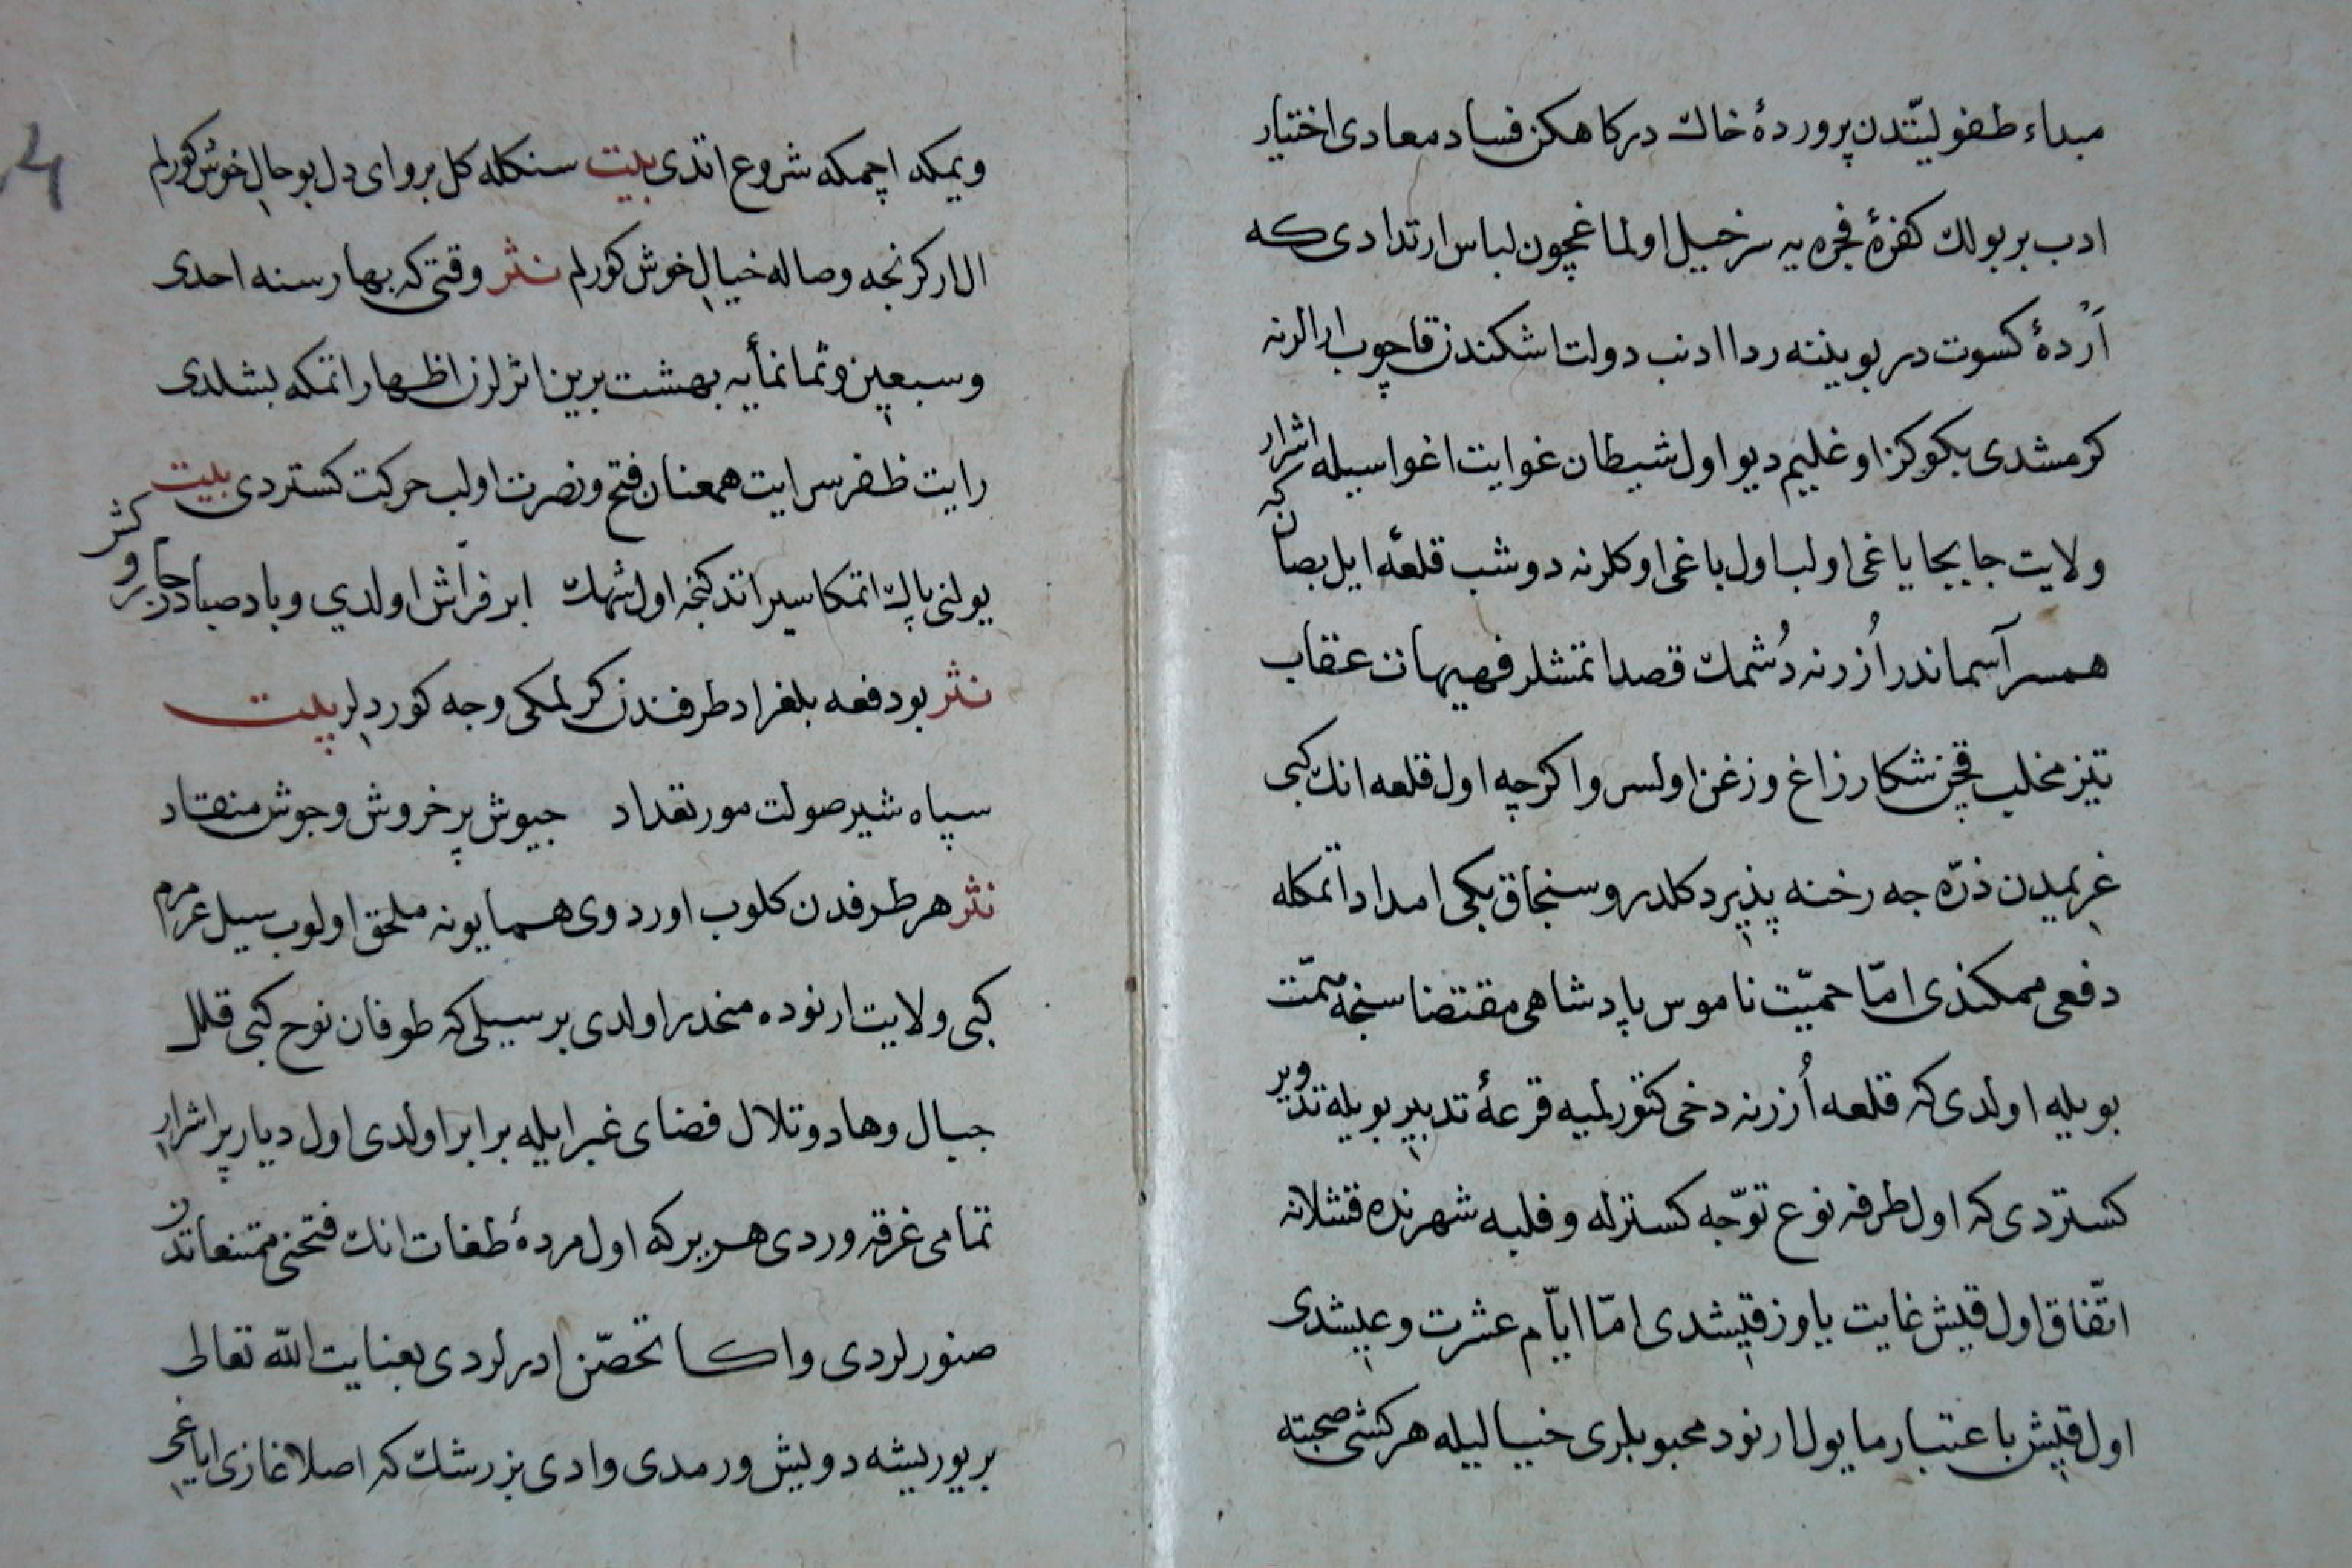 مبداء طفولیّتدن پروردۀ خاك درکاهکن فساد معادی اختیار
ادب بر بولك کفرۀ فجره یه سرخیل اولماغچون لباس ارتدادی که
اَرْدۀ کسوت در بویننه ردا ادنب دولت اشکندن قاچوب ارالرنه
کرمشدی بکوکز اوغلییم دیو اول شیطان غوایت اغواسیله اشرار
ولایت جابجا یاغی اولب اول باغی اوکلرنه دوشب قلعۀ ایل بصان که
همسر آسماندر اُزرنه دُشمك قصد اتمشلر فهیهات عقاب
تیز مخلب قچن شکار زاغ و زغن اولسر واکرچه اول قلعه انك کبی
غریمیدن ذرّه جه رخنه پذیر دکلدر و سنجاق بکی امداد اتمکله
دفعی ممکندی امّا حمیّت ناموس پادشاهی مقتضاسنجه همّت
بویله اولدی که قلعه اُزرنه دخی کتورلمیه قرعۀ تدبیر بویله تدویر
کستردی که اول طرفه نوع توجّه کسترله و فلبه شهرنده قشلانه
اتّفاق اول قیش غایت یاوز قیشدی امّا ایّام عشرت و عیشدی
اول قیش باعتبار مایول ارنود محبوبلری خیالیله هر کشی صحبته
ویمکه اچمکه شروع اتدی بیت سنکله کل بر وای دل بو حال خوش کورلم
ال ارکرنجه وصاله خیال خوش کورلم نثر وقتی که بهار سنه احدی
وسبعین وثمانمأیه بهشت برین اثرلرن اظهار اتمکه بشلدی
رایت ظفر سرایت همعنان فتح و نصرت اولب حرکت کستردی بیت
یولنی پاك اتمکا سیر اتدکنجه اول شهك ابر فرّاش اولدی و باد صبا جاروکش
نثر بو دفعه بلغراد طرفندن کرلمکی وجه کوردلر بیت
سپاه شیر صولت مور تعداد جیوش پر خروش و جوش منقاد
نثر هر طرفدن کلوب اوردوی همایونه ملحق اولوب سیل عرمرم
کبی ولایت ارنوده منحدر اولدی بر سیلی که طوفان نوح کبی قلل
جبال و هاد و تلال فضای غبر ایله برابر اولدی اول دیار پر اشرار
تمامی غرقه وردی هر یرکه اول مردۀ طغات انك فتحنی ممتنعاتدن
صنورلردی و اکا تحصّن ادرلردی بعنایت الله تعالی
بر یوریشه دویش ورمدی وادی بزرشك که اصلا غازی ایاغی